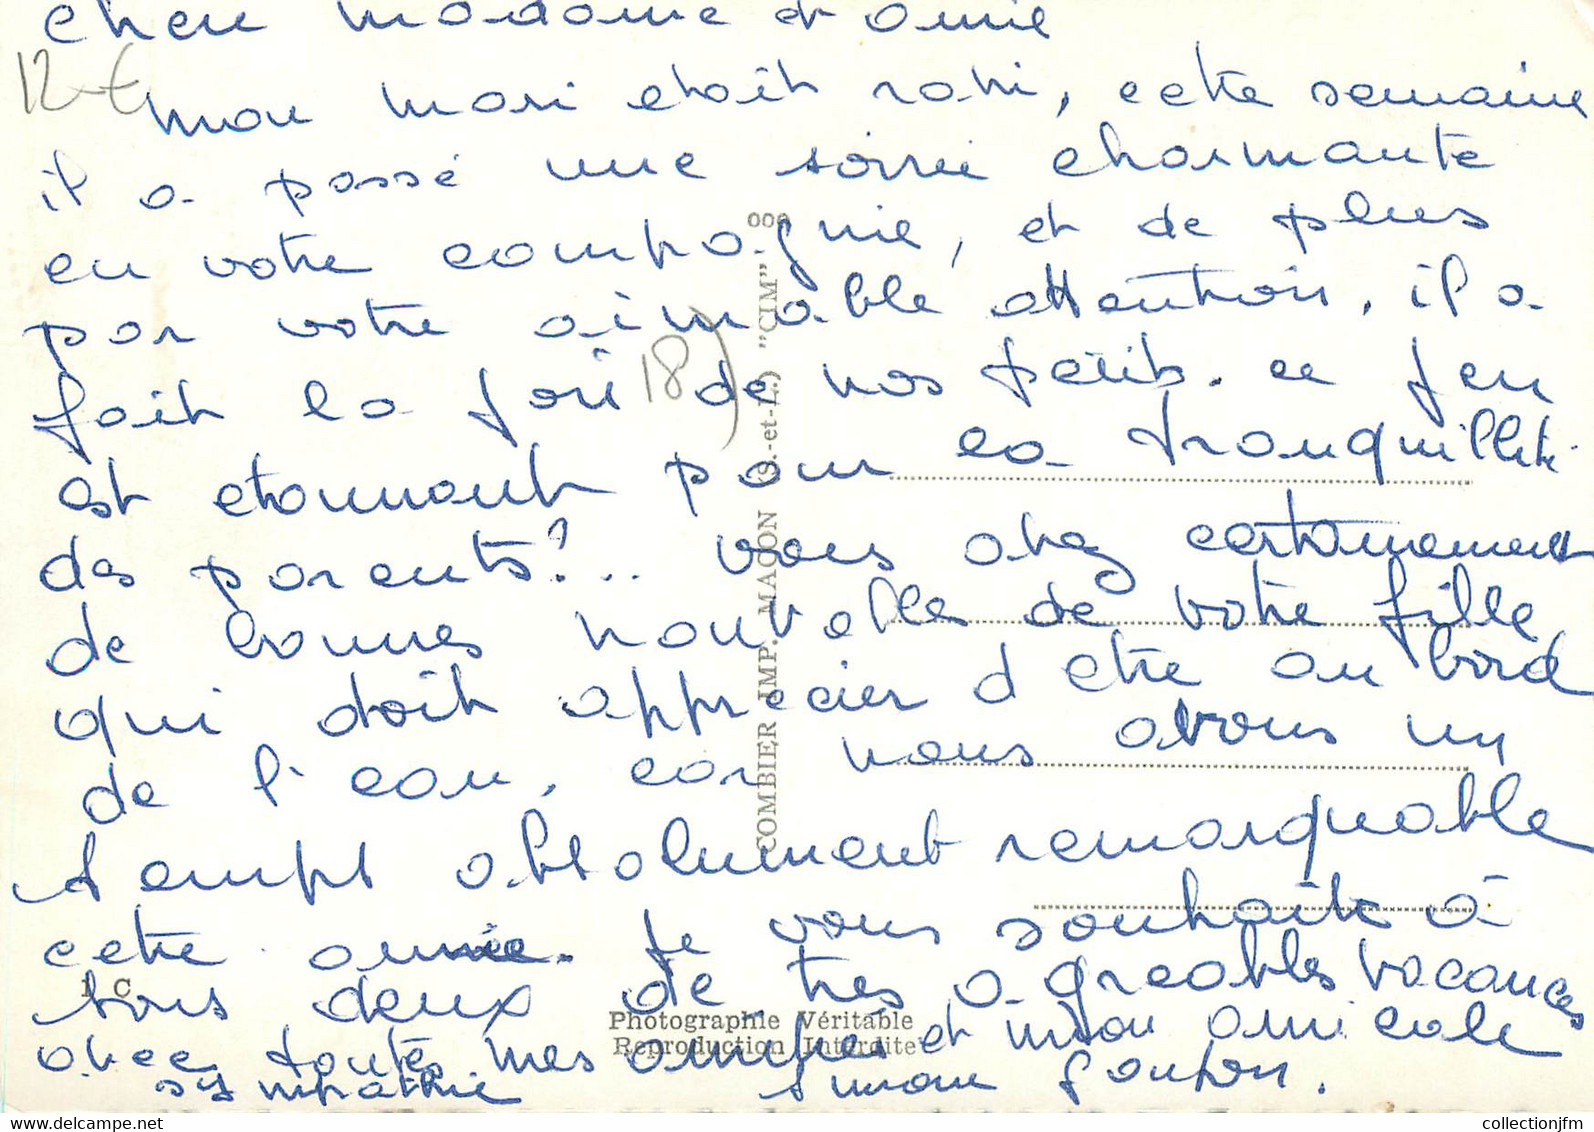 cher madame et amie
12 €
mon mari etait ravi, cette semaine
il a passé une soirée charmante
en votre compagnie, et de plus
par votre aimable attention, il a
fait la joie de nos petits. ce jeu
est etonnant pour la tranquillité
des parents?... vous avez certainement
de bonnes nouvelles de votre fille
qui doit apprécier d etre au bord
de l'eau, car nous avons un
temps absolument remarquable
cette année. Je vous souhaite à
tous deux de très agreables vacances
avec toutes mes amities et mon amicale
sympathie Simone
18)
COMBIER IMP. MACON (S.-et-L.) "CIM"
1 C
Photographie Véritable
Reproduction Interdite
collectionjfm